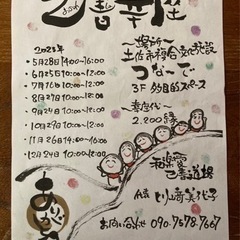 己書幸座
2023年
5月28日 14:00~16:00
6月25日 10:00~12:00
7月16日 10:00~12:00
8月27日 10:00~12:00
9月24日 10:00~12:00
10月29日 10:00~12:00
11月26日 14:00~16:00
12月24日 10:00~12:00
~場所~
土佐市複合文化施設
つなーで
3F 多目的スペース
~幸座代~
2,200縁
己書道場
ありがとう
お問い合わせ 090-7578-7667